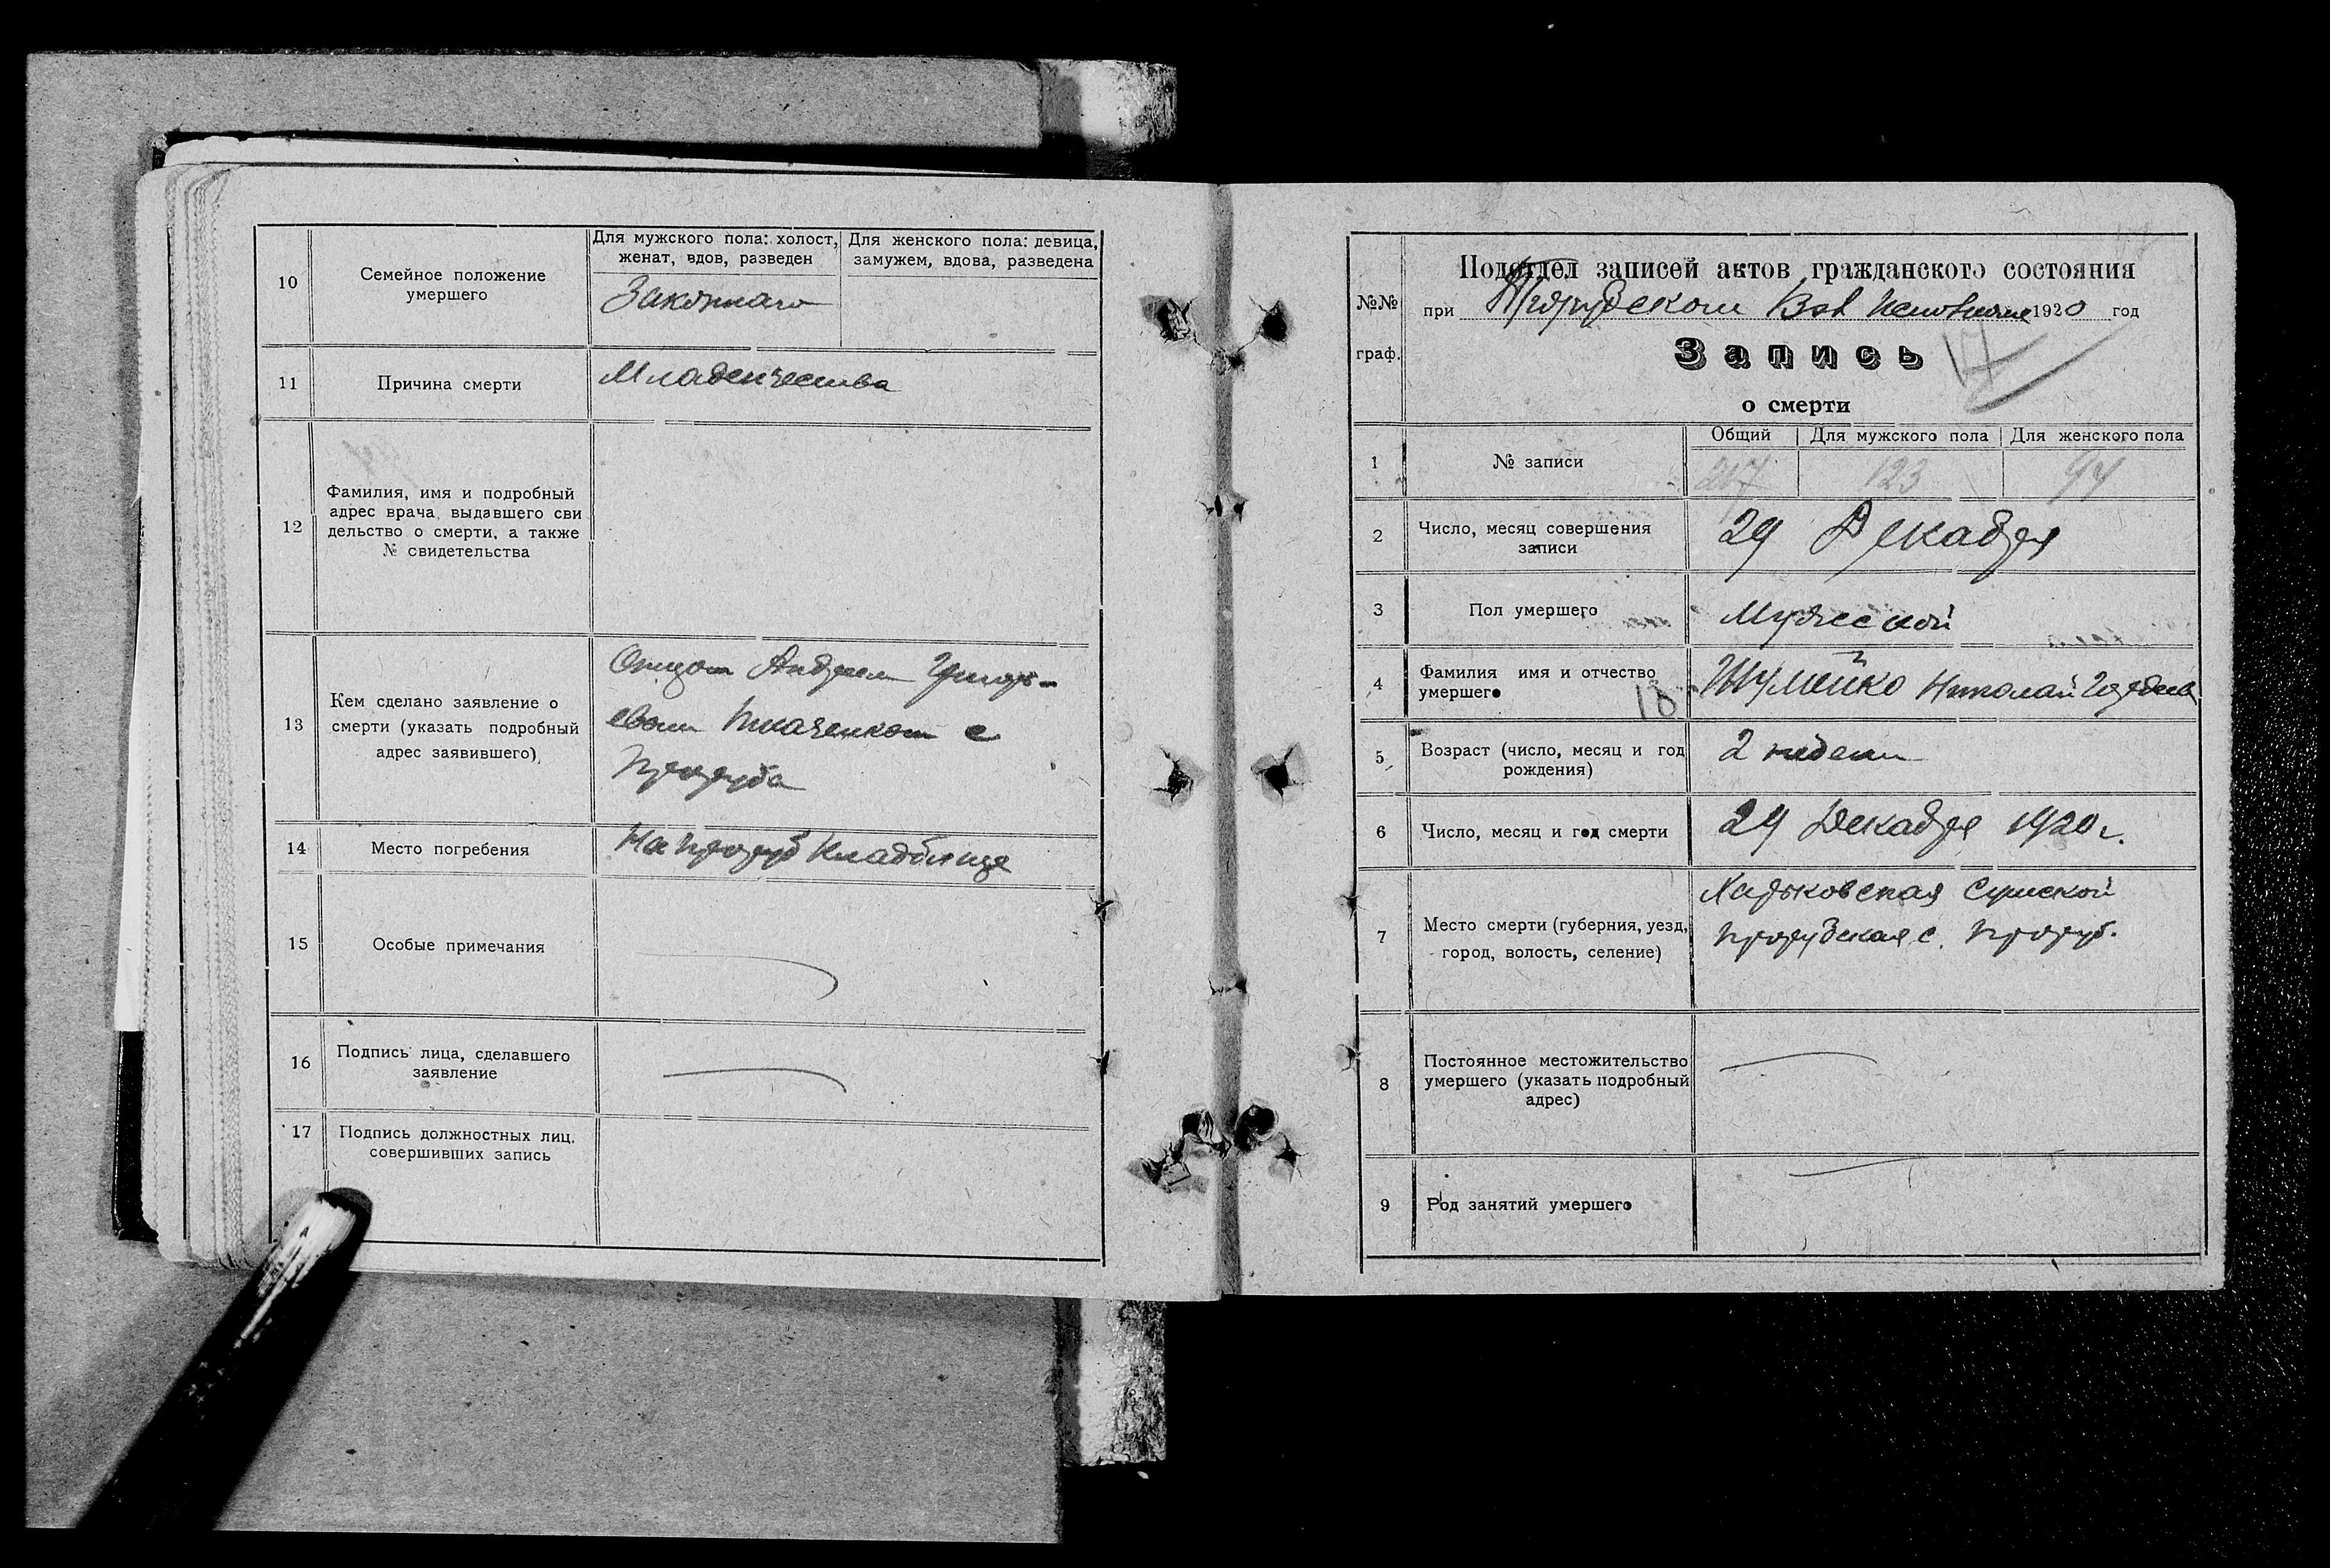 10
Семейное положение
умершего
Для мужского пола: холост,
женат, вдов, разведен
Для женского пола: девица,
замужем, вдова, разведена
Законнаго
11
Причина смерти
Младенчества
12
Фамилия, имя и подробный
адрес врача, выдавшего сви
дельство о смерти, а также
№ свидетельства
13
Кем сделано заявление о
смерти (указать подробный
адрес заявившего)
Отцом Андреем Григорь-
евым Ткаченком с
Проруба
14
Место погребения
На Проруб Кладбище
15
Особые примечания
16
Подпись лица, сделавшего
заявление
17
Подпись должностных лиц.
совершивших запись
№№
граф.
Подотдел записей актов гражданского состояния
при Прорубском Вол 1920 год
Запись
17
о смерти
1
№ записи
Общий
Для мужского пола
Для женского пола
217
123
94
2
Число, месяц совершения
записи
29 Декабря
3
Пол умершего
Мужеской
4
Фамилия имя и отчество
умершего
18
Шумейко Николай
5
Возраст (число, месяц и год
рождения)
2 недели
6
Число, месяц и год смерти
29 Декабря 1920 г.
7
Место смерти (губерния, уезд,
город, волость, селение)
Харьковская Сумской
Прорубская с. Проруб.
8
Постоянное местожительство
умершего (указать подробный
адрес)
9
Род занятий умершего